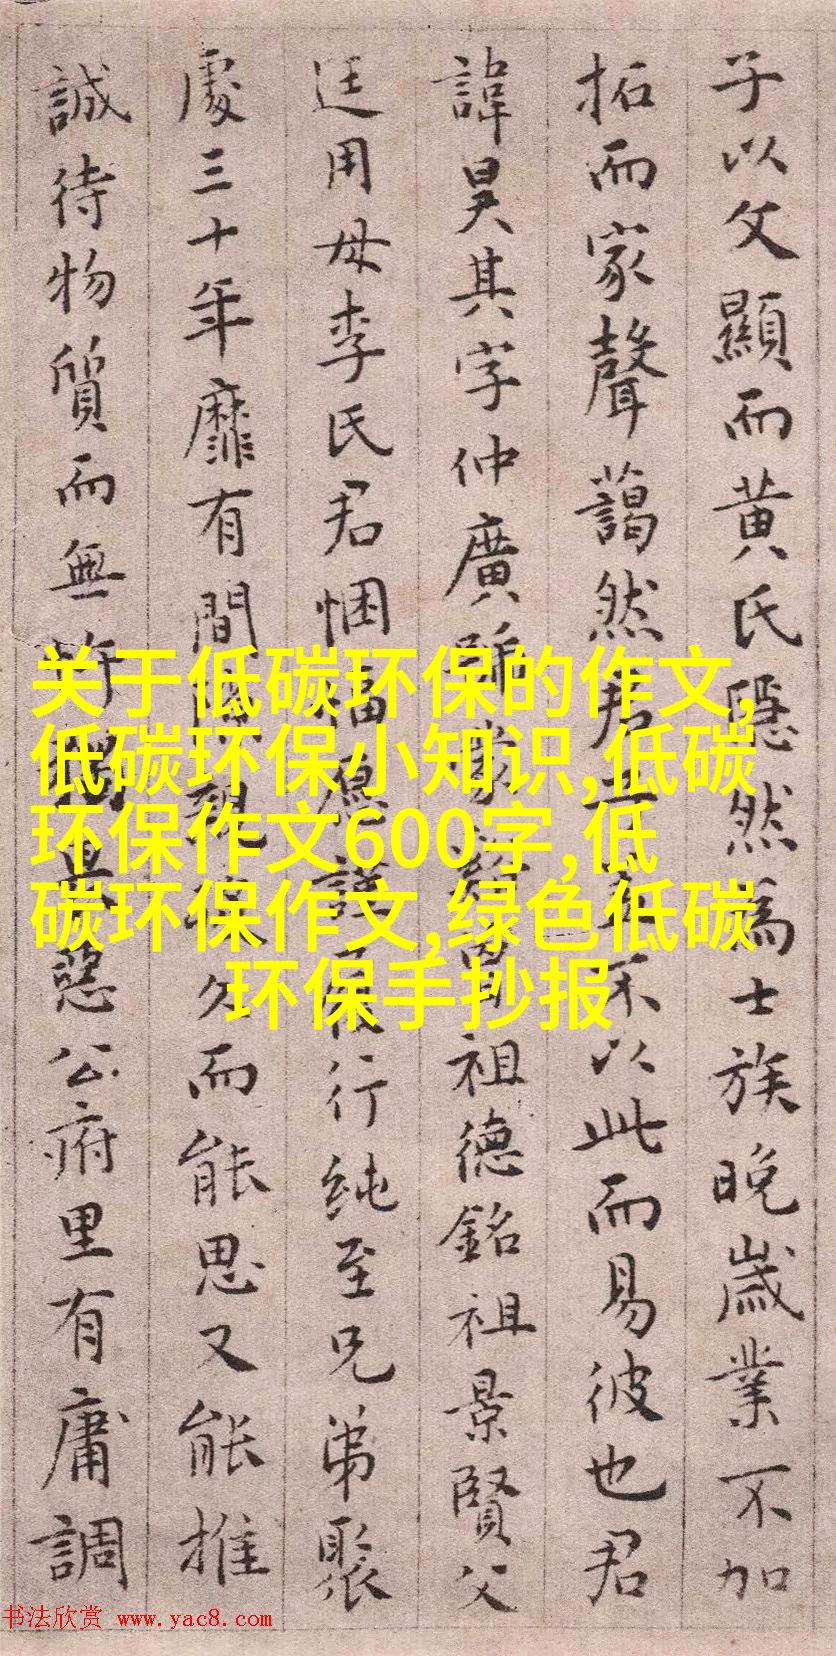 子以父顯而黄氏隱然為士族晚歲業不加
拓而家聲藹然君不以此而易彼也君
諱昊其字仲廣祖德銘祖景賢父
廷用母李氏君悃愊愿謹履行純至兄弟聚
處三十年靡有間久而能思又能推
誠待物質而無公府里有庸調
关于低碳环保的作文,
低碳环保小知识,低碳
环保作文600字,低
碳环保作文,绿色低碳
环保手抄报
书法欣赏 www.yac8.com